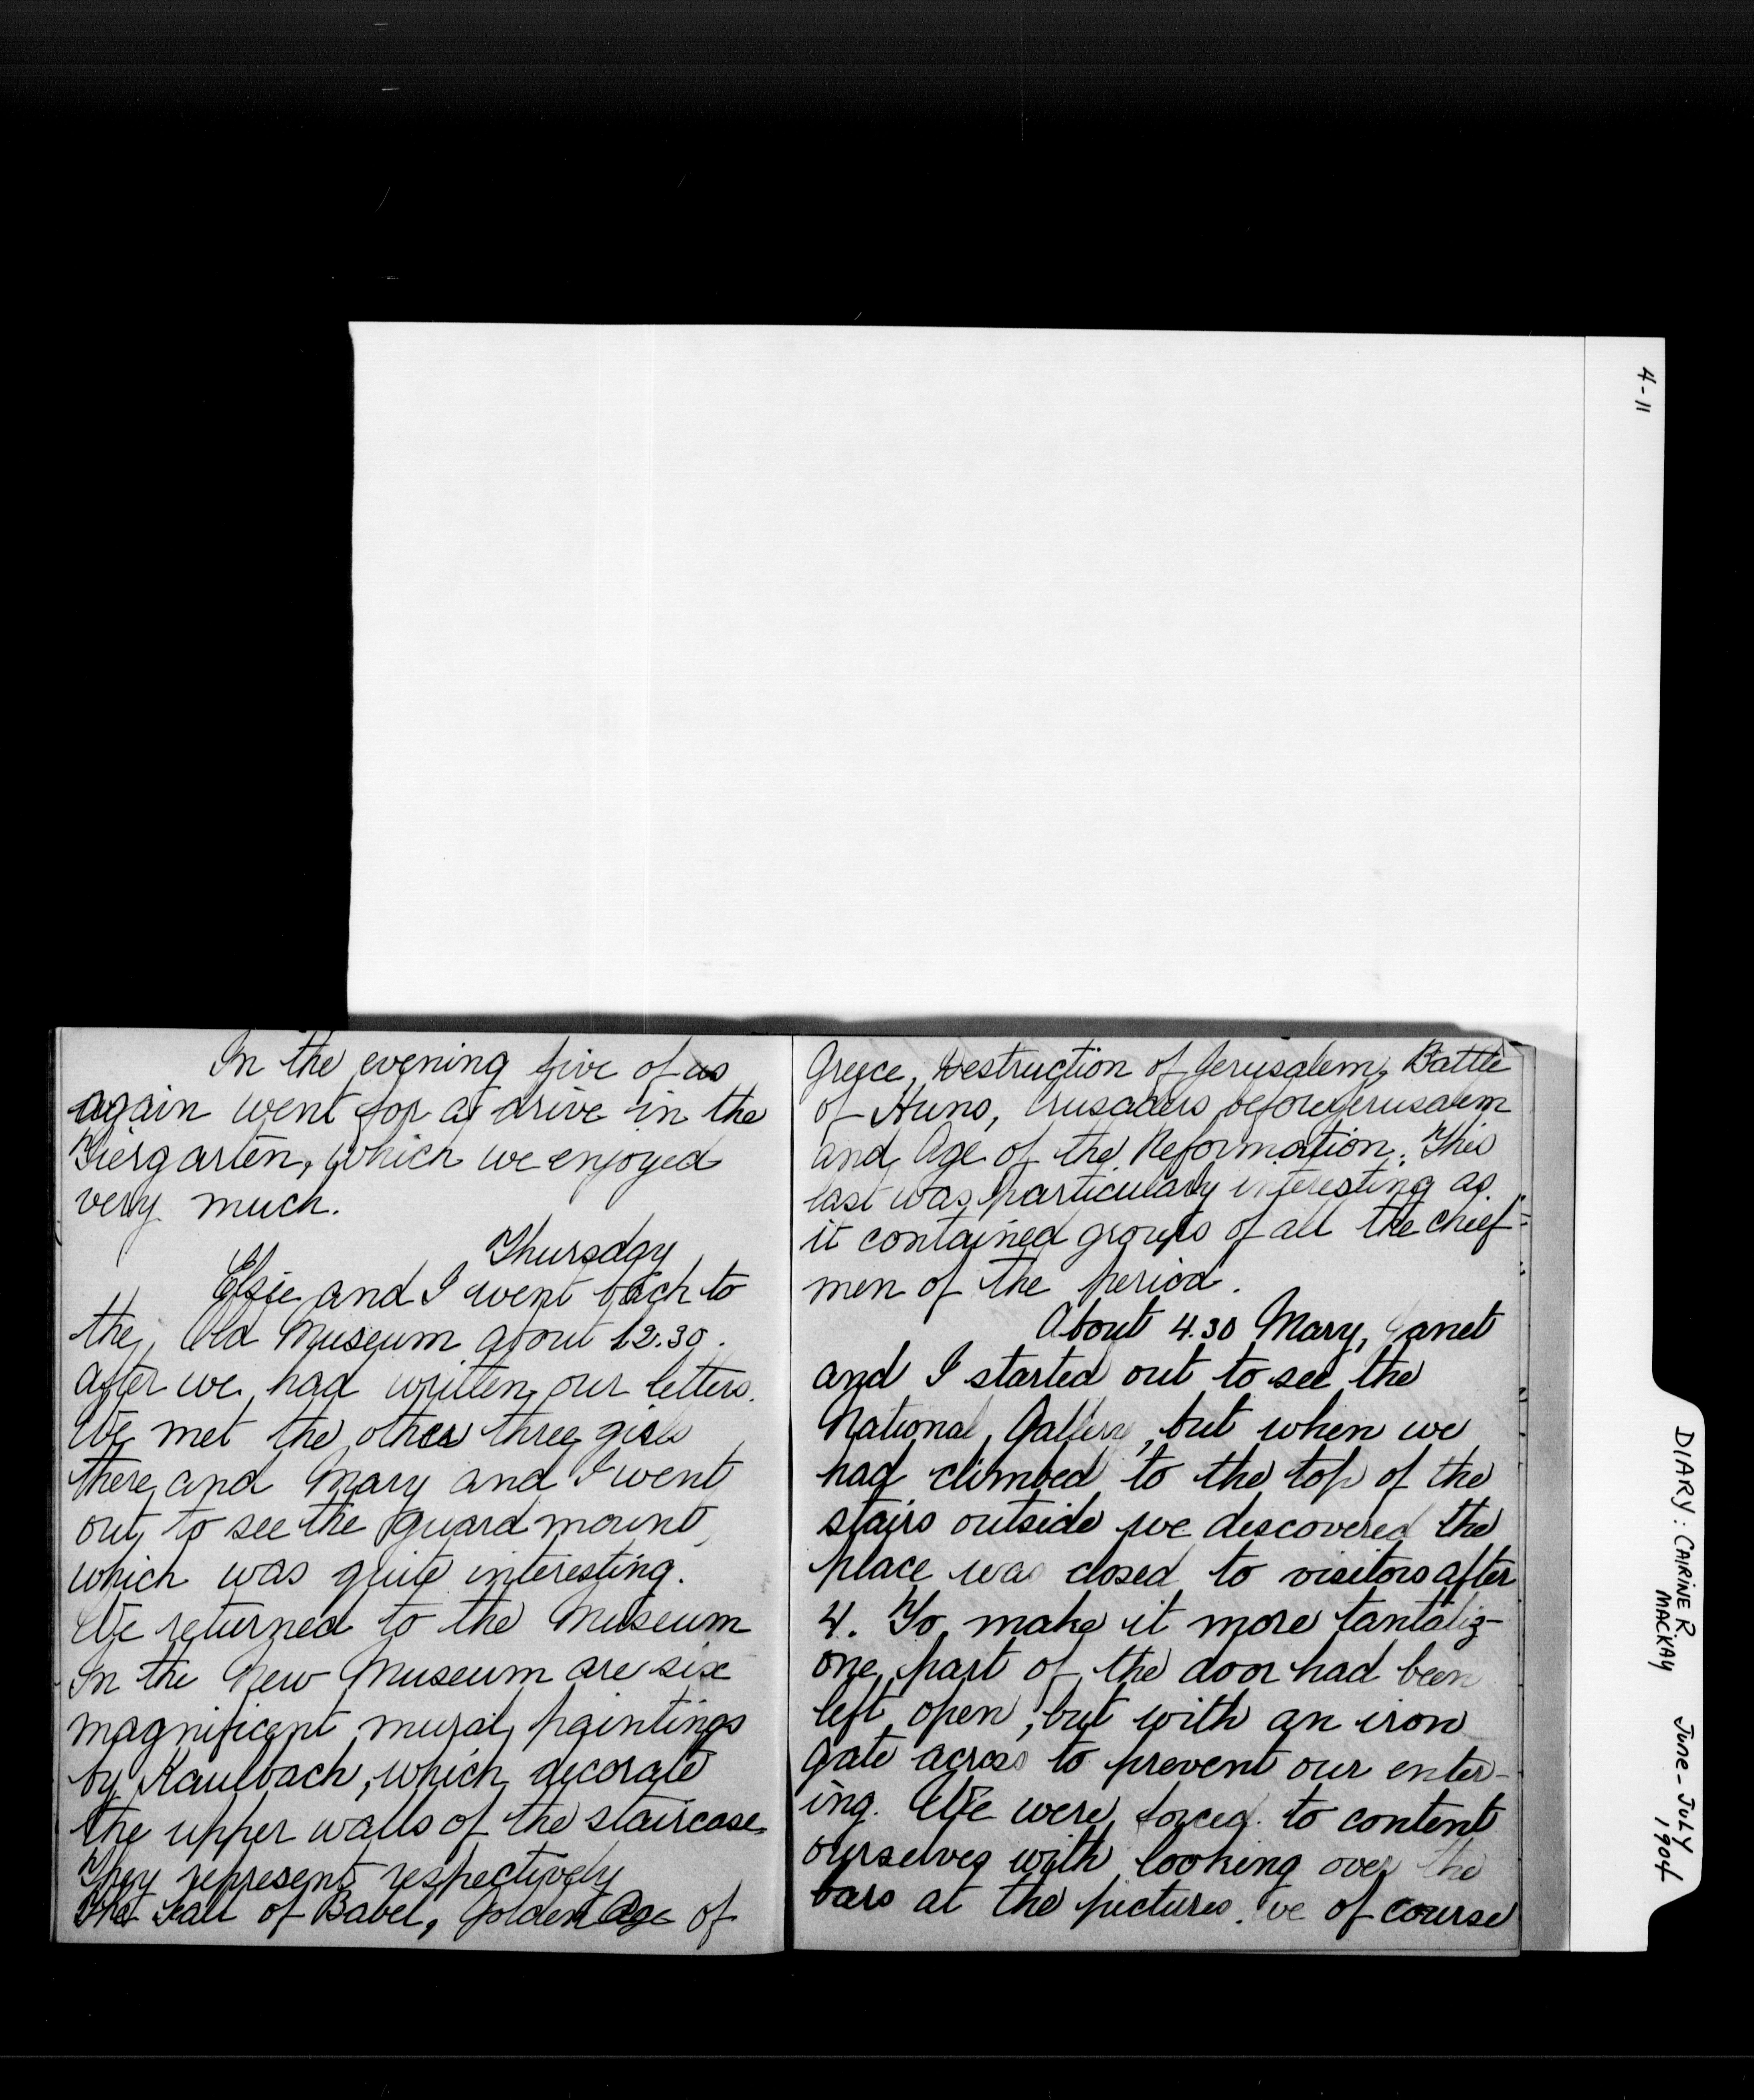 In the evening five of us
again went for a drive in the
Tiergarten, which we enjoyed
very much.
Thursday
Elsie and I went back to
the Old Museum about 12.30.
after we had written our letters.
We met the other three girls
there and Mary and I went
out to see the guard mount,
which was quite interesting.
We returned to the Museum
In the New Museum are six
magnificent mural paintings
by Kaulbach, which decorate
the upper walls of the staircase.
They represent respectively
The Fall of Babel, Golden Age of
Greece, Destruction of Jerusalem, Battle
of Huns, Crusaders before Jerusalem
and Age of the Reformation. This
last was particularly interesting as
it contained groups of all the chief
men of the period.
About 4.30 Mary, Janet
and I started out to see the
National Gallery, but when we
had climbed to the top of the
stairs outside we discovered the
place was closed to visitors after
4. To make it more tantaliz-
one part of the door had been
left open, but with an iron
gate across to prevent our enter-
ing. We were forced to content
ourselves with looking over the
bars at the pictures. We of course
4-11
DIARY: CAIRINE R. MACKAY
June - July 1904